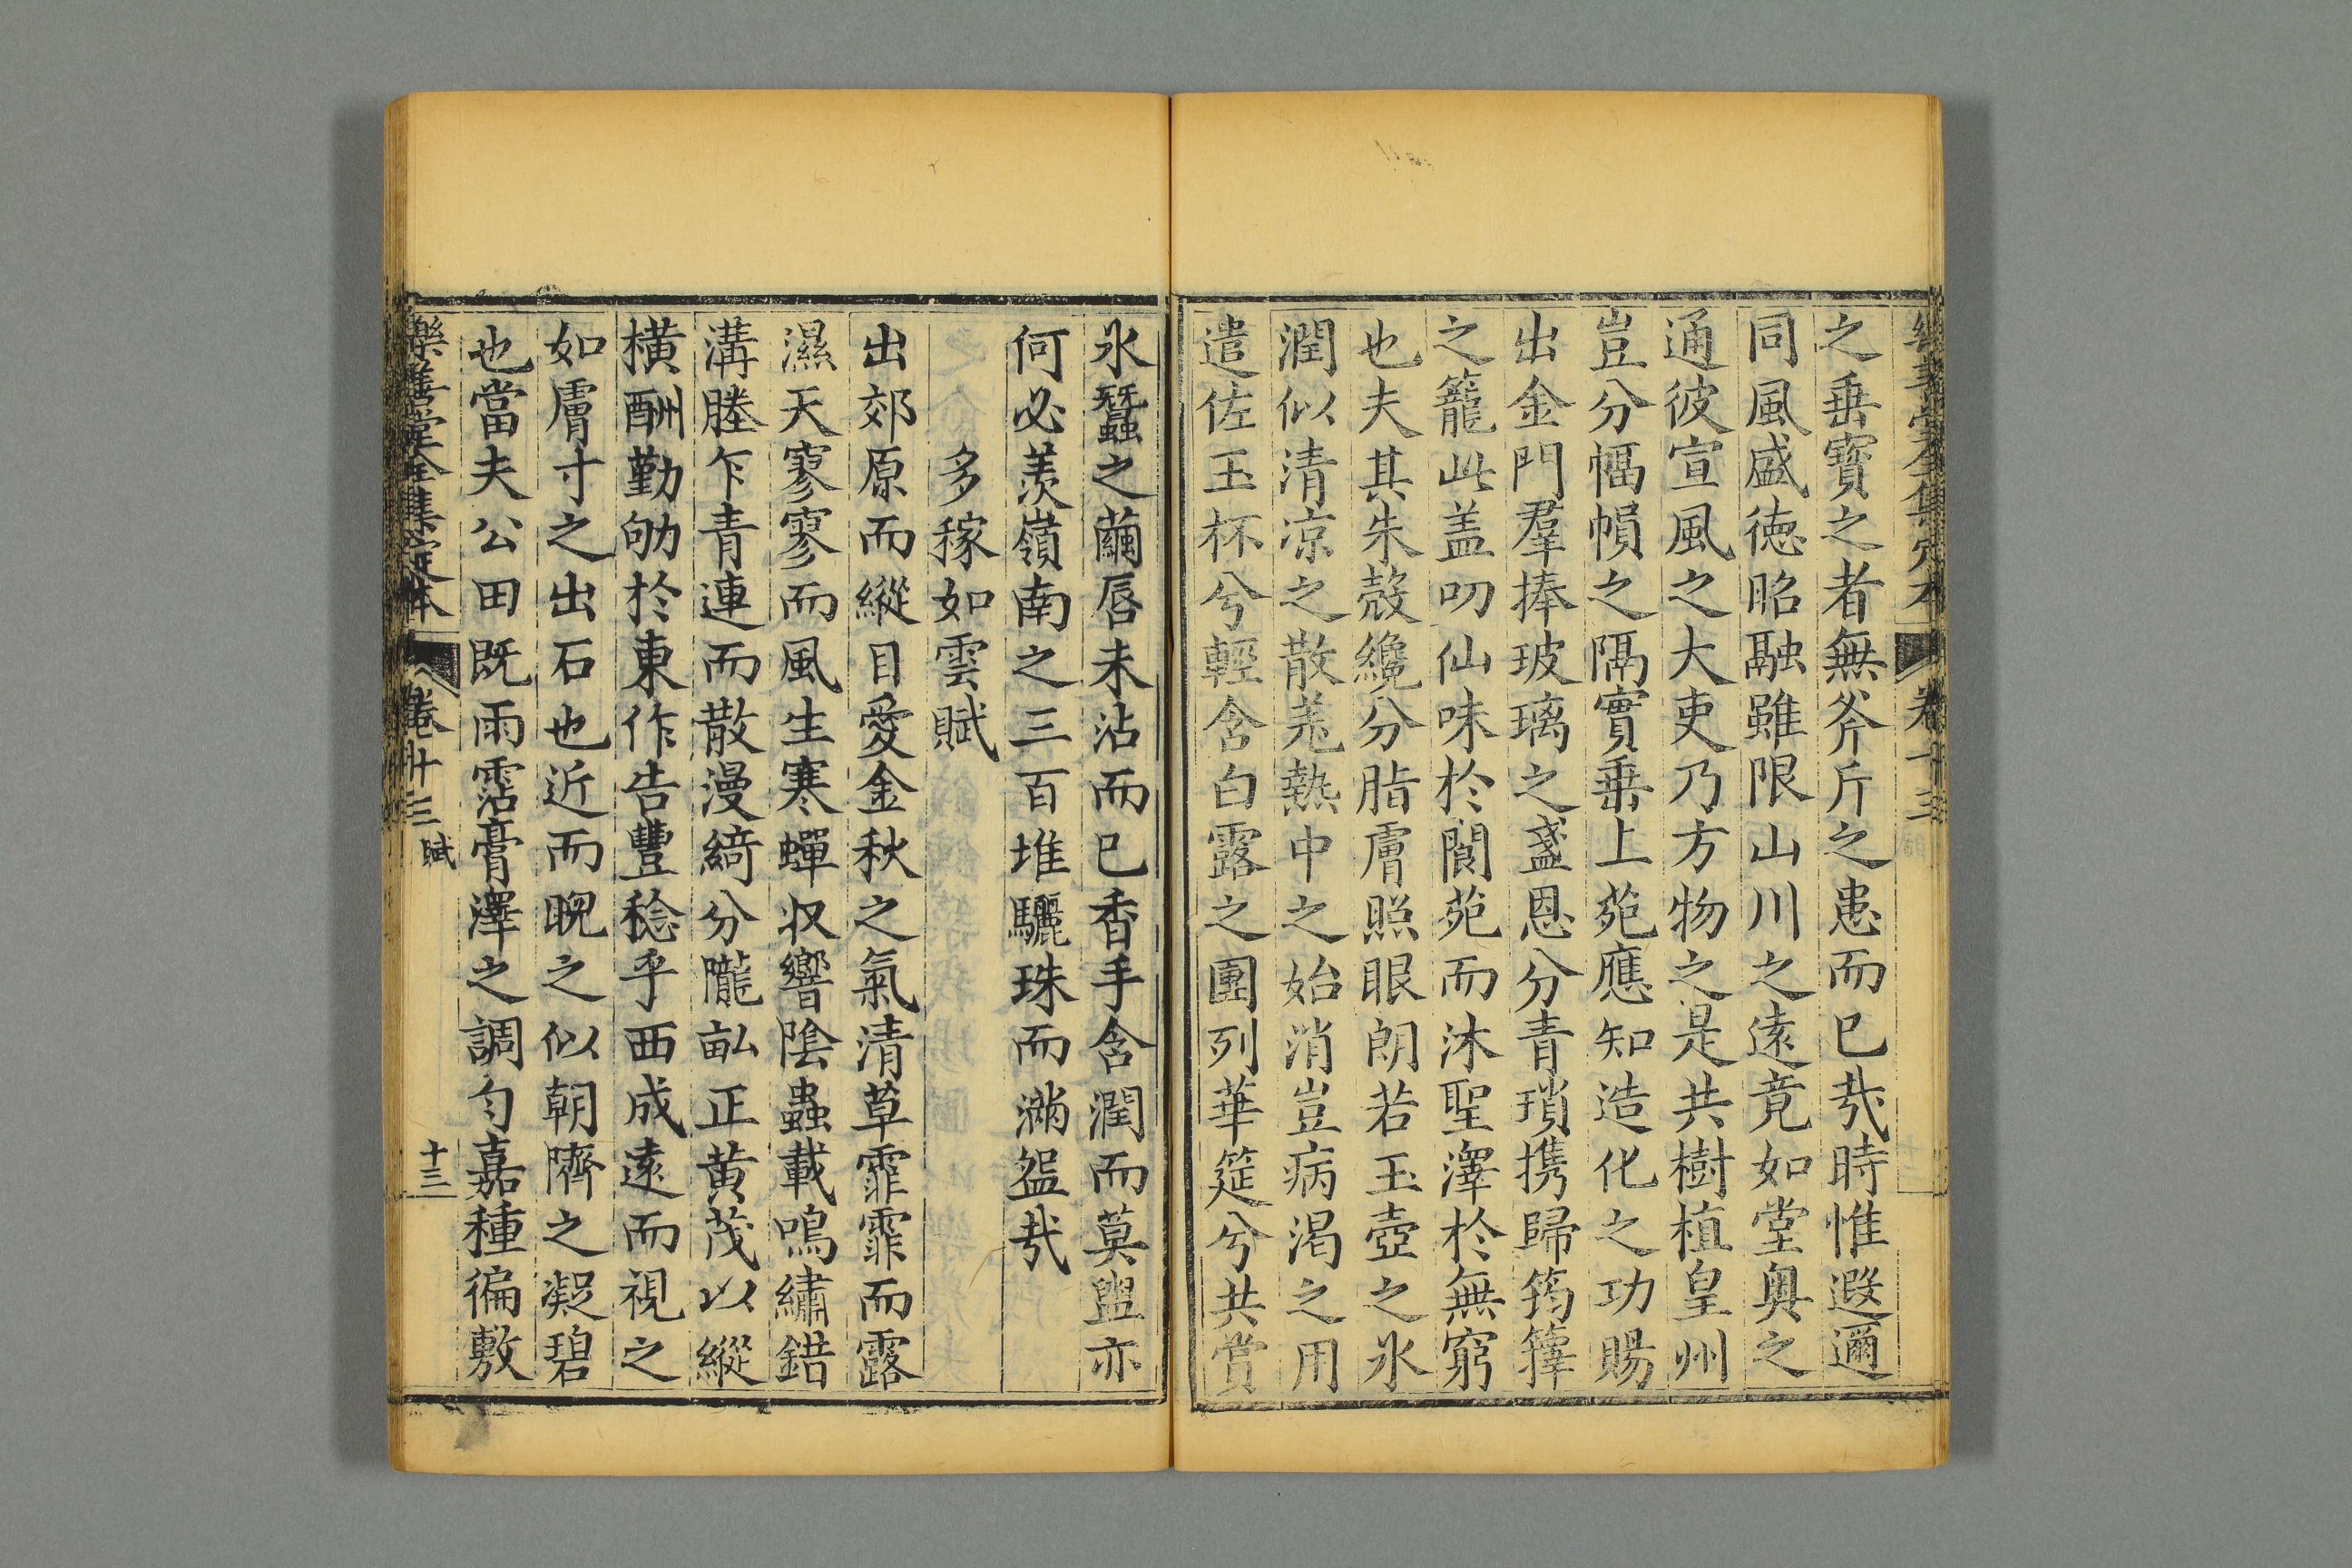 之垂寶之者無斧斤之患而已哉時惟遐邇
同風盛徳昭融雖限山川之遠竟如堂奥之
通彼宣風之大吏乃方物之是共樹植皇州
豈分幅幀之隔實垂上苑應知造化之功賜
出金門羣捧玻璃之盞恩分青瑣携歸筠籜
之籠此盖叨仙味於閬苑而沐聖澤於無窮
也夫其朱殼纔分脂膚照眼朗若玉壺之氷
潤似清凉之散羗熱中之始消豈病渴之用
遣佐玉杯兮輕含白露之團列華筵兮共賞
氷蠶之繭唇未沾而已香手含潤而莫盥亦
何必羨嶺南之三百堆驪珠而滿盌哉
多稼如雲賦
出郊原而縱目愛金秋之氣清草霏霏而露
濕天寥寥而風生寒蟬収響陰蟲載鳴繡錯
溝塍乍青連而散漫綺分隴畆正黄茂以縱
横酬勤劬於東作告豐稔乎西成遠而視之
如膚寸之出石也近而睨之似朝隮之凝碧
也當夫公田既雨霑膏澤之調匀嘉種徧敷
樂善堂全集定本 卷十三 賦 十三